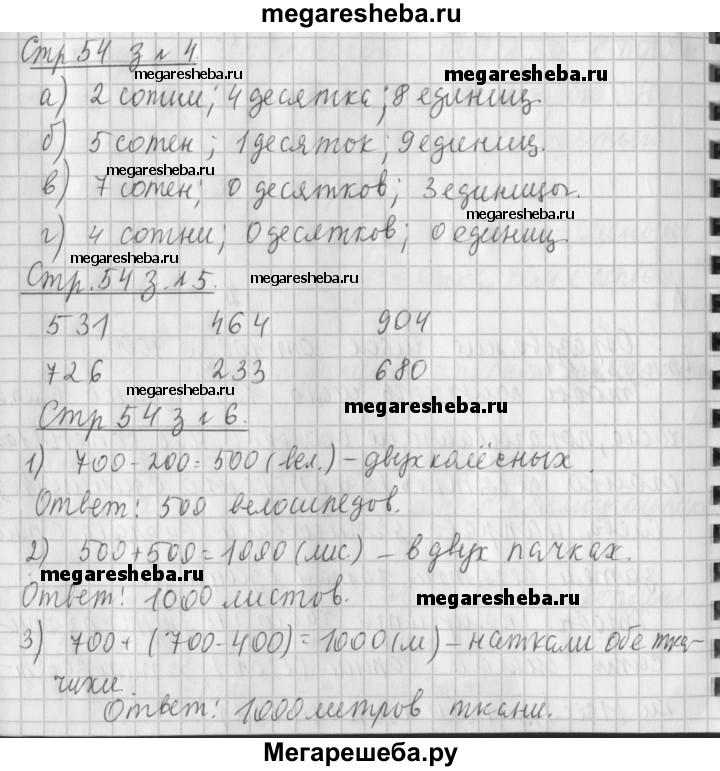 megaresheba.ru
Стр 54 з № 4
megaresheba.ru megaresheba.ru
а) 2 сотни; 4 десятка; 8 единиц.
б) 5 сотен; 1 десяток; 9 единиц.
megaresheba.ru
в) 7 сотен; 0 десятков; 3 единицы.
megaresheba.ru
г) 4 сотни; 0 десятков; 0 единиц
megaresheba.ru
Стр. 54 з. № 5. megaresheba.ru
531 464 904
726 233 680
megaresheba.ru
Стр 54 з № 6. megaresheba.ru
1) 700-200=500 (вел.) - двухколёсных.
Ответ: 500 велосипедов.
2) 500+500=1000 (лис) - в двух пачках.
megaresheba.ru
Ответ: 1000 листов. megaresheba.ru
3) 700+(700-400)=1000 (м) - наткали обе тка-
чихи.
Ответ: 1000 метров ткани.
Мегарешеба.ру